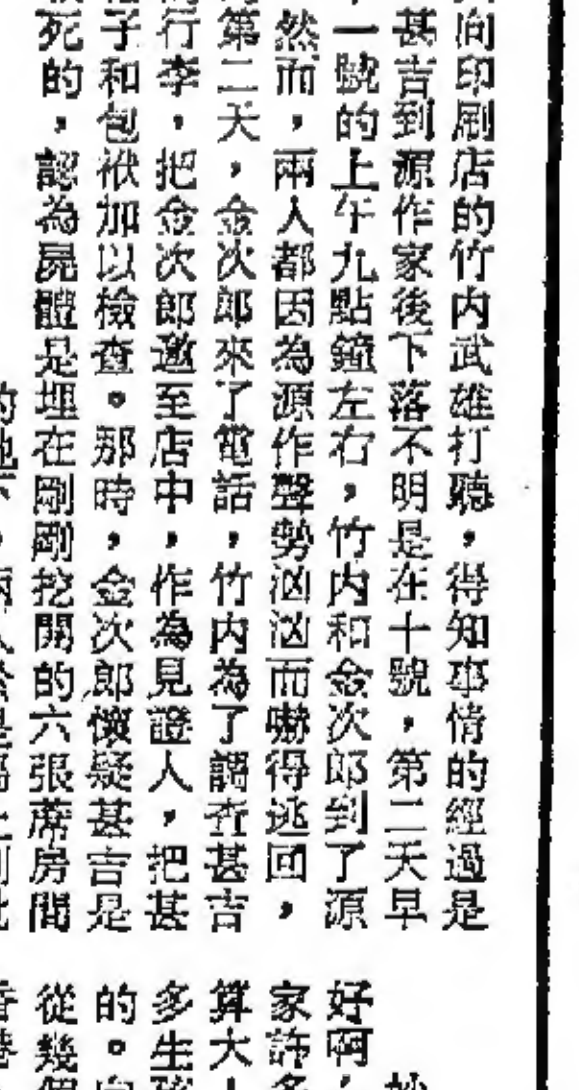 向印刷店的竹内武雄打聽，得知事情的經過是
甚吉到源作家後下落不明是在十號，第二天早
一號的上午九點鐘左右，竹内和金次郎到了源
然而，兩人都因為源作聲勢汹汹而嚇得逃回，
第二天，金次郎來了電話，竹内為了調查甚吉
行李，把金次郎邀至店中，作為見證人，把甚
子和包袱加以檢查。那時，金次郎懷疑甚吉是
死的，認為屍體是埋在剛剛挖開的六張蓆房間
好啊，
家許多
算大
多生孩
的。向
從幾個
香港